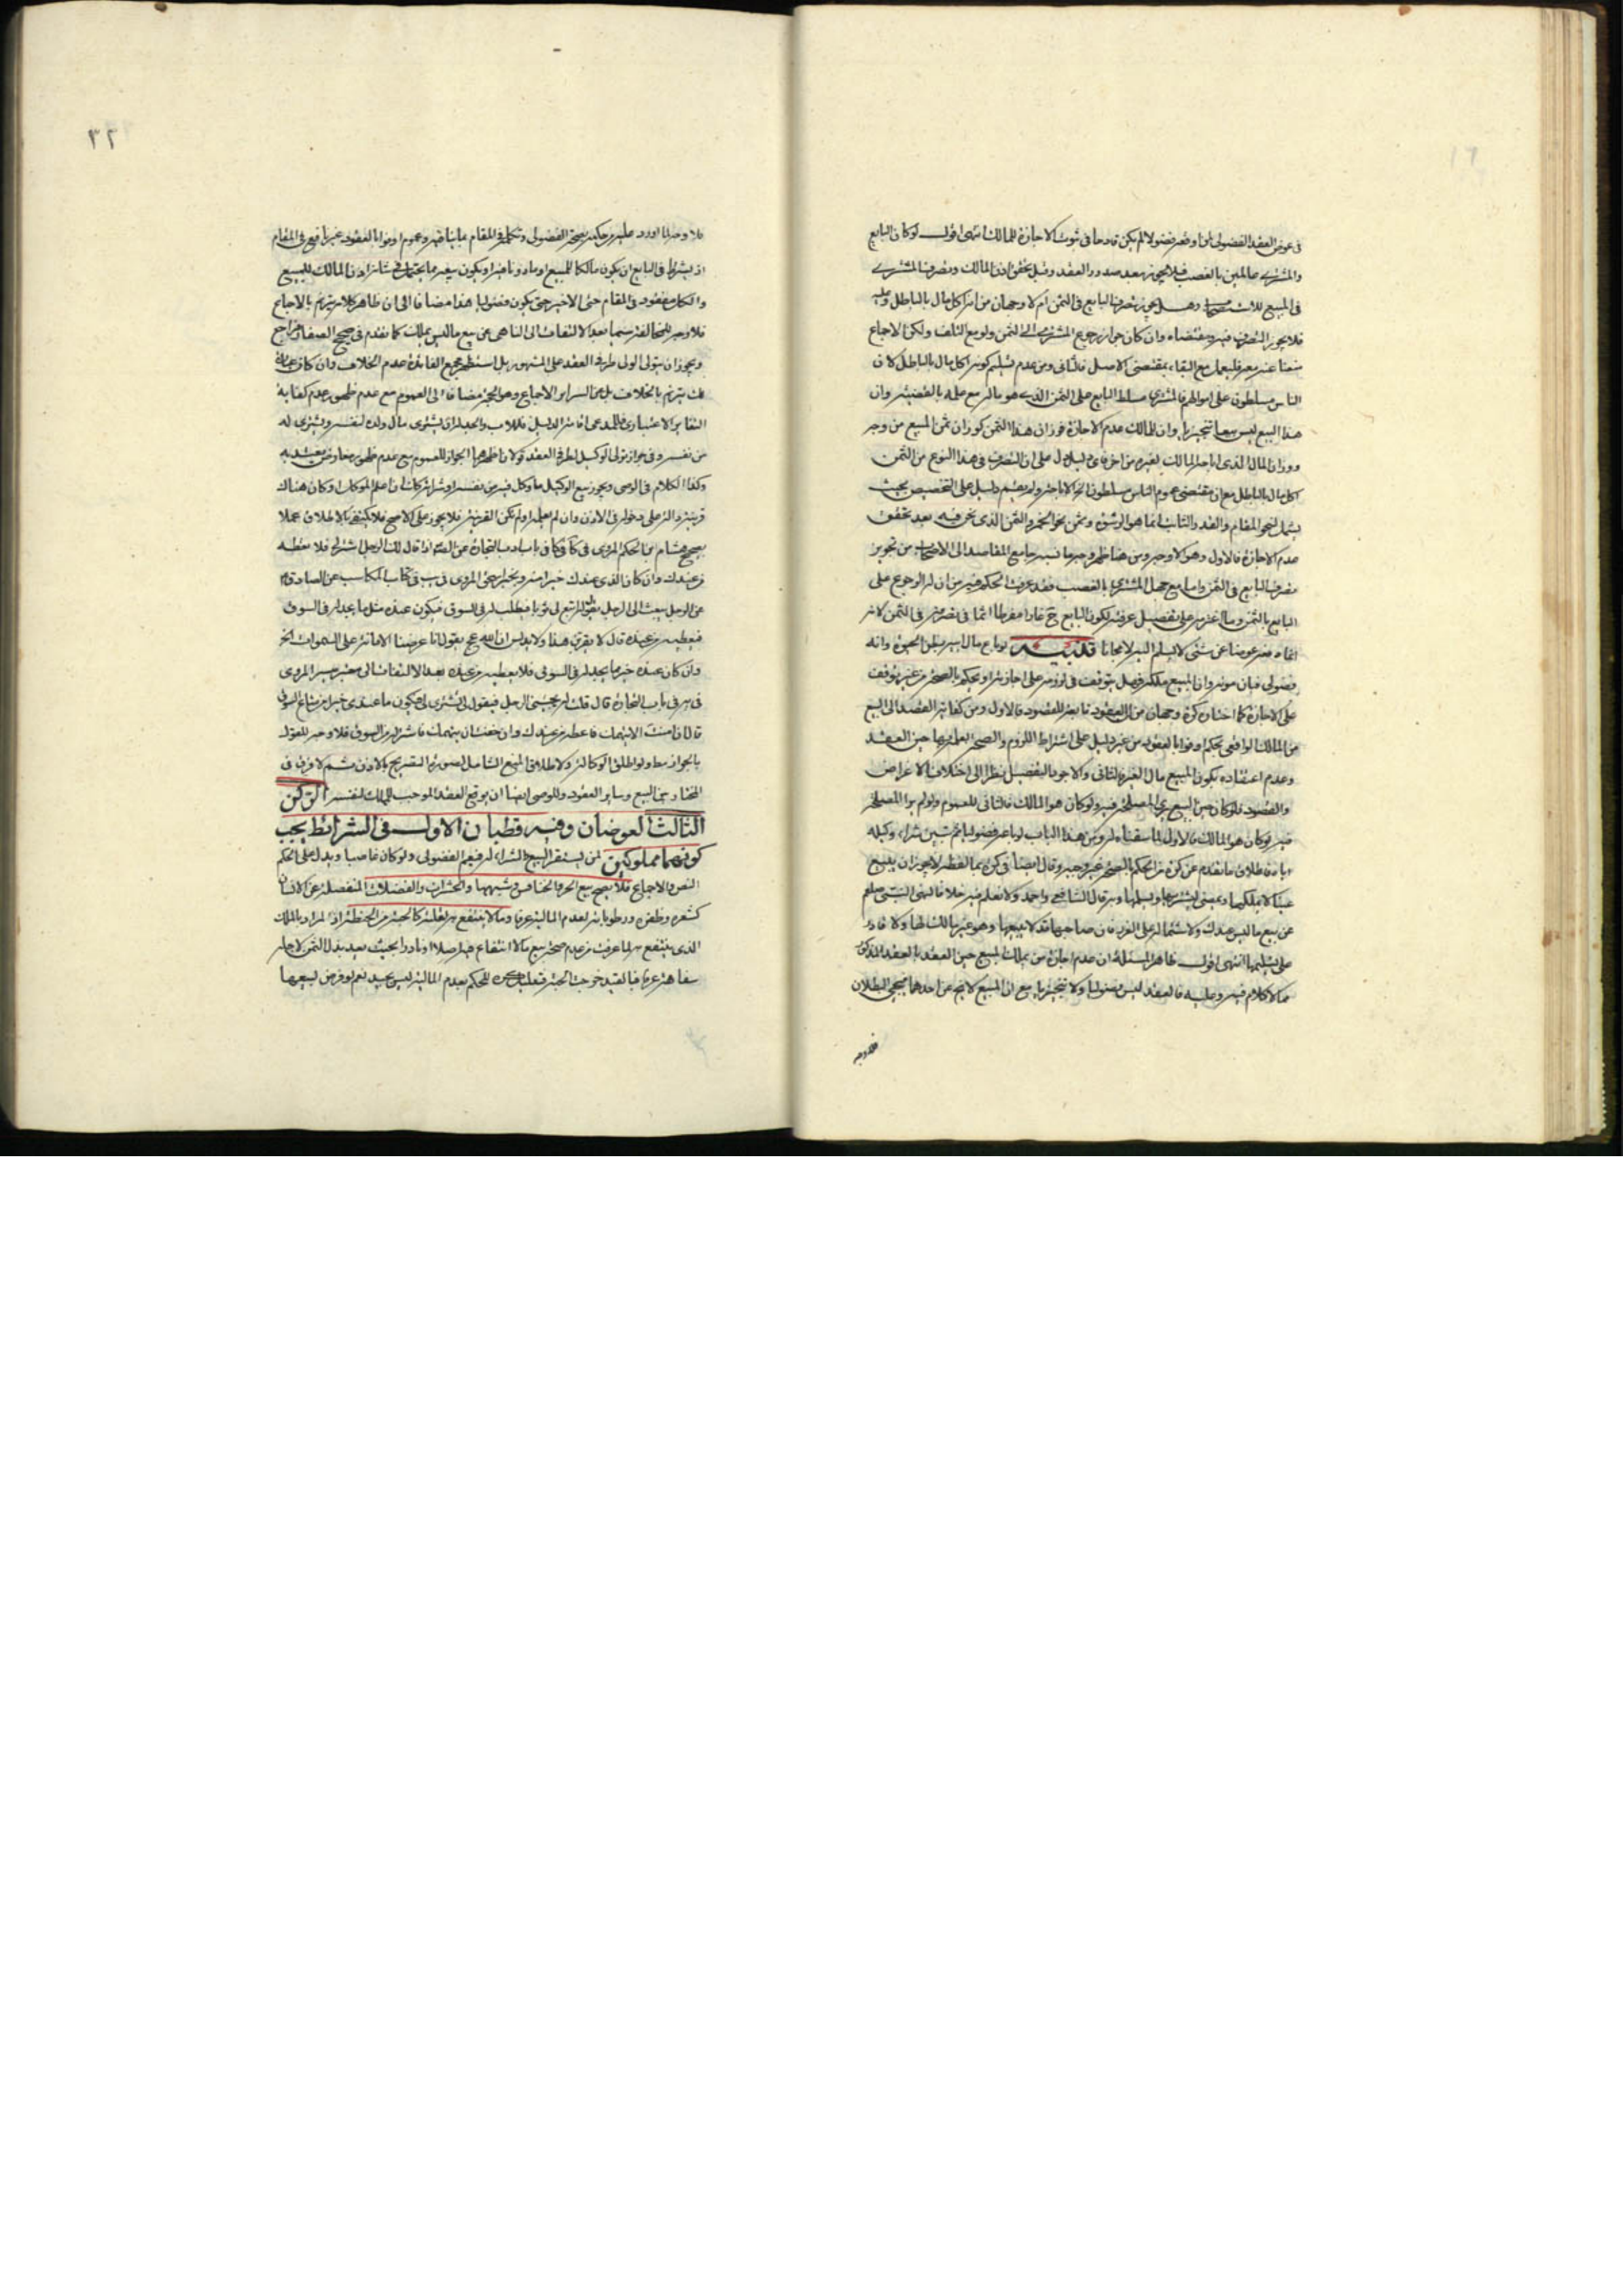 في عوض العقد الفضولي لو وقع فضولا لم يكن قادحا في ثبوت الاجازة للمالك انتهى اقول لو كان البايع
والمشتري عالمين بالغصب فلا يجوز بعد صدور العقد وقبل تحقق اذن المالك وتصرف المشتري
في المبيع للاستصحاب وهل يجوز تصرف البايع في الثمن ام لا وجهان من انه اكل مال بالباطل وعليه
فلا يجوز التصرف فيه ومقتضاه وان كان جواز رجوع المشتري الى الثمن ولو مع التلف ولكن الاجماع
منعنا عنه معه فليعمل مع البقاء بمقتضى الاصل فالثاني ومن عدم تسليم كونه اكل مال بالباطل لان
الناس مسلطون على اموالهم فالمشتري مسلط البايع على الثمن الذي هو ماله مع علمه بالقضية وان
هذا البيع ليس بيعا تنجيزيا وان للمالك عدم الاجازة فوزان هذا الثمن كوزان ثمن المبيع من وجه
ووزان المال الذي اباحه المالك لغيره من اخر فاي دليل دل على ان التصرف في هذا النوع من الثمن
اكل مال بالباطل مع ان مقتضى عموم الناس مسلطون الخ الاباحة ولم يقم دليل على التخصيص بحيث
يشمل لنحو المقام والقدر الثابت انما هو الرشوة وثمن نحو الخمر والثمن الذي نحن فيه بعد تحقق
عدم الاجازة فالاول وهو الاوجه ومن هنا ظهر وجه ما نسبه جامع المقاصد الى الاصحاب من تجويز
تصرف البايع في الثمن واما مع جهل المشتري بالغصب فقد عرفت الحكم فيه من ان له الرجوع على
البايع بالثمن وما اغترمه على تفصيل عرفته لكون البايع ح غارا مفرطا اثما في تصرفه في الثمن لانه
اتماه معه عوضا عن شئ لا يسلم اليه لا مجانا تنبيه لو باع مال ابيه بظن الحيوة وانه
فضولي فبان موته وان المبيع ملكه فهل يتوقف في لزومه على اجازته او يحكم بالصحة من غير توقف
على الاجازة كما اختاره كرة وجهان من ان العقود تابعة للقصود فالاول ومن كفاية القصد الى البيع
من المالك الواقعي بحكم اوفوا بالعقود من غير دليل على اشتراط اللزوم والصحة بعلمها حين العقد
وعدم اعتقاده بكون المبيع مال الغير فالثاني والاجود التفصيل نظرا الى اختلاف الاغراض
والقصود فلو كان حين البيع يرى المصلحة فيه ولو كان هو المالك فالثاني للعموم ولو لم ير المصلحة
فيه لو كان هو المالك فالاول لما سقناه له ومن هذا الباب لو باعه فضوليا ثم تبين شراء وكيله
اياه فاطلاق ما تقدم عن كرة من الحكم بالصحة غير وجيه وقال ايضا في كرة بما لفظه لا يجوز ان يبيع
عينا لا يملكها ويمضي ليشتريها ويسلمها وبه قال الشافعي واحمد ولا نعلم فيه خلافا لنهي النبي صلعم
عن بيع ما ليس عندك ولاشتماله على الغرر فان صاحبها قد لا يبيعها وهو غير مالك لها ولا قادر
على تسليمها انتهى اقول ظاهر المسئلة ان عدم اجازة من يملك المبيع حين العقد بالعقد المذكور
مما لا كلام فيه وعليه فالعقد ليس فضوليا ولا تنجيزيا مع ان المبيع لا يخ عن احدهما فيجئ البطلان
فلا وجه
٣٢
فلا وجه لما اورد عليه من حكمه بصحة الفضولي وتكلمه في المقام بما ينافيه وعموم اوفوا بالعقود غير نافع في المقام
اذ يشترط في البايع ان يكون مالكا للمبيع او ماذونا فيه او يكون بيعه مما يحتمل في شانه اذن المالك للبيع
والكل مفقود في المقام حتى الاخير حتى يكون فضوليا هذا مضافا الى ان ظاهر كلامه يرم بالاجماع
فلا وجه للمخالفة سيما بعد الالتفات الى الناهي عن بيع ما ليس يملك كما تقدم في صحيح الصفار فراجع
ويجوز ان يتولى الولي طرفي العقد على المشهور بل استظهر مجمع الفائدة عدم الخلاف وان كان عبارة
التغاير الاعتباري فالمدعى اقامة الدليل فللاب والجد ان يشتري مال ولده لنفسه ويشتري له
من نفسه وفي جواز تولي الوكيل لطرفي العقد قولان اظهرهما الجواز للعموم مع عدم ظهور معارض يعتد به
وكذا الكلام في الوصي ويجوز بيع الوكيل ما وكل فيه من نفسه او شرائه كذلك ان اعلم الموكل او كان هناك
قرينة دالة على دخوله في الاذن وان لم يعلم او لم تكن القرينة فلا يجوز على الاصح فلا يكتفى بالاطلاق عملا
بصحيح هشام بن الحكم المروي في كا في باب ادب التجارة عن الصادق اذا قال لك الرجل اشتر لي فلا تعطه
من عندك وان كان الذي عندك خيرا منه وبخبر اسحق المروي في يب في كتاب المكاسب عن الصادق ع
عن الرجل يبعث الى الرجل يقول له ابتع لي ثوبا فيطلب له في السوق فيكون عنده مثل ما يجد له في السوق
فيعطيه من عنده قال لا يقربن هذا ولا يدنس ان الله عج يقول انا عرضنا الامانة على السموات الخ
وان كان عنده خيرا مما يجد له في السوق فلا يعطيه من عنده بعد الالتفات الى معتبر ميسر المروي
في يه في باب التجارة قال قلت له يجيئني الرجل فيقول تشتري لي فيكون ما عندي خيرا من متاع السوق
قال ان امنت الا يتهمك فاعطه من عندك وان خفت ان يتهمك فاشتر له من السوق فلا وجه للقول
بالجواز مط ولو اطلق الوكالة ولا لاطلاق المنع الشامل لصورة التصريح بالاذن ثم لا فرق في
المختار بين البيع وساير العقود وللوصي ايضا ان يوقع العقد الموجب للملك لنفسه الركن
الثالث العوضان وفيه قطبان الاول في الشرائط يجب
كونهما مملوكين لمن يستقر البيع والشراء له فيعم الفضولي ولو كان غاصبا ويدل على الحكم
النص والاجماع فلا يصح بيع الحر والخنافس وشبهها والحشرات والفضلات المنفصلة عن الانسان
كشعره وظفره ورطوباته لعدم المالية عرفا وما لا ينتفع به لقلته كالحبة من الحنطة اذ المراد بالملك
الذي ينتفع به لما عرفت من عدم صحة بيع ما لا انتفاع فيه اصلا او نادرا بحيث يعد بذل الثمن لاجله
سفاهة عرفا فبالقيد خرجت الحبة فتعليل كره للحكم بعدم المالية ليس بجيد نعم لو فرض لبيعها